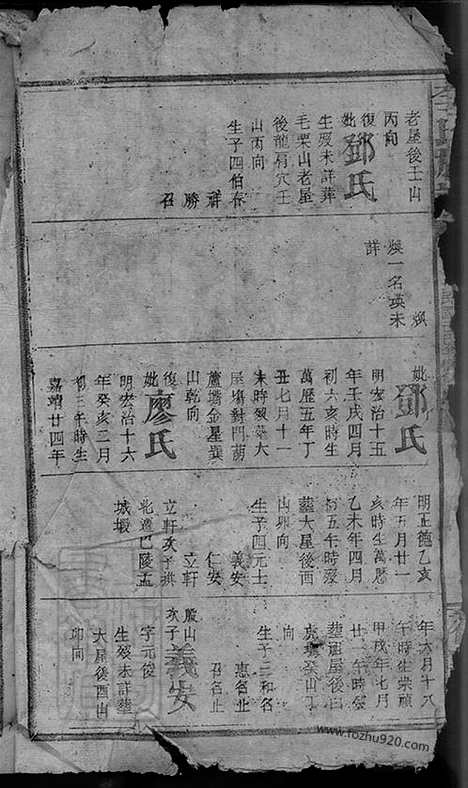 老屋後壬山
丙向
復妣鄧氏
生歿未詳葬
毛栗山老屋
後龍肩穴壬
山丙向
生子四伯春
祥 勝 召
煥
煥一名瑛未
詳
妣鄧氏
明宏治十五
年壬戌四月
初六亥時生
萬歷五年丁
丑七月十一
未時歿葬大
屋塲對門葫
蘆墩金星嶺
山乾向
復妣廖氏
明宏治十六
年癸亥二月
初三午時生
嘉靖廿四年
明正德乙亥
年五月廿一
亥時生萬歷
乙未年四月
初五午時歿
葬大星後酉
山卯向
生子四元士
義安
仁安
立軒
立軒次子祺
圯遷巴陵孟
城塅
年六月十八
午時生崇禎
甲戌年七月
廿 午時歿
葬班屋後白
虎塘癸山丁
向
生子三和名
惠名止
召名止
殷山
次子義安
字元俊
生歿未詳葬
大屋後酉山
卯向
www.fozhu920.com